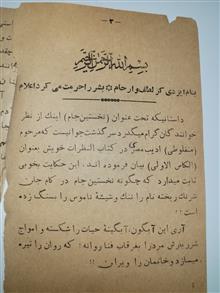 - ۳ -
بسم الله الرحمن الرحیم
بنام ایزدی کز لطف و ارحام بشر را حرمت می کرد اعلام
داستانیکه تحت عنوان (نخستین جام) اینك از نظر
خوانندگان گرام میگذرد سرگذشت جوانیست که مرحوم
(منفلوطی) ادیب مصری در کتاب النظرات خویش بعنوان
(الکاس الاولی) بیان فرموده اند. این حکایت بخوبی
ثابت میدارد که چگونه نخستین جام در کام جان
شرنك ریخته نام را ننك و شیشهٔ ناموس را بسنگ زده
است !!
آری این آبگون، آبگینهٔ حیات را شکسته و امواج
شرربارش مردرا بغرقاب فنا روانه؛ که روان را تیره
میسازد و خانمان را ویران !!